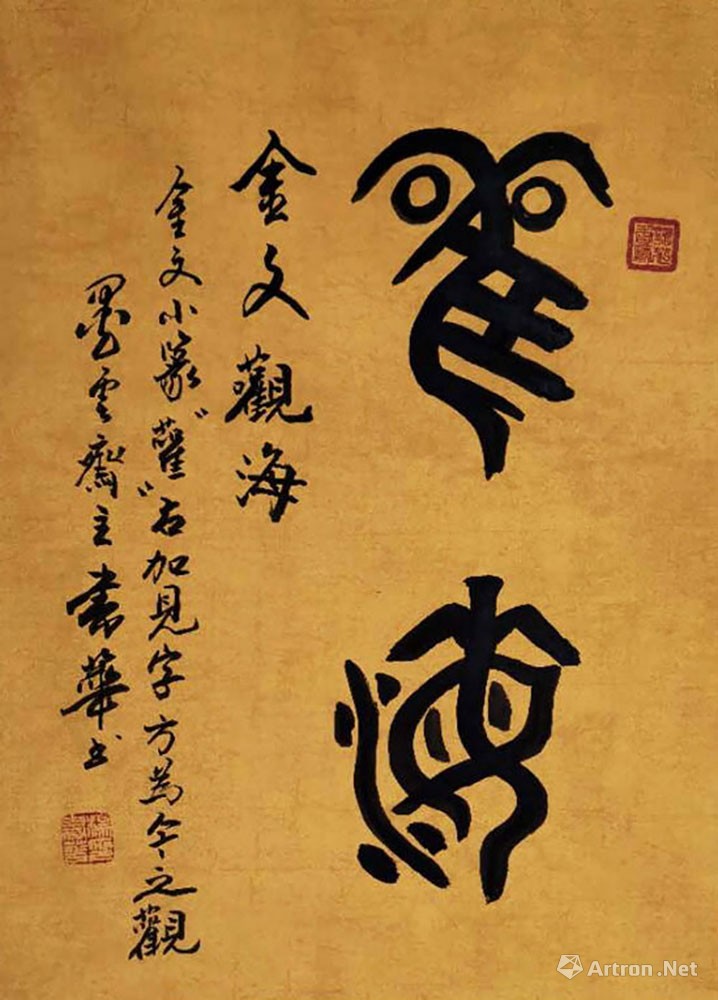 雚海
金文觀海
金文小篆"雚"右加見字方為今之觀
墨雲齋主袁華书
Artron.Net